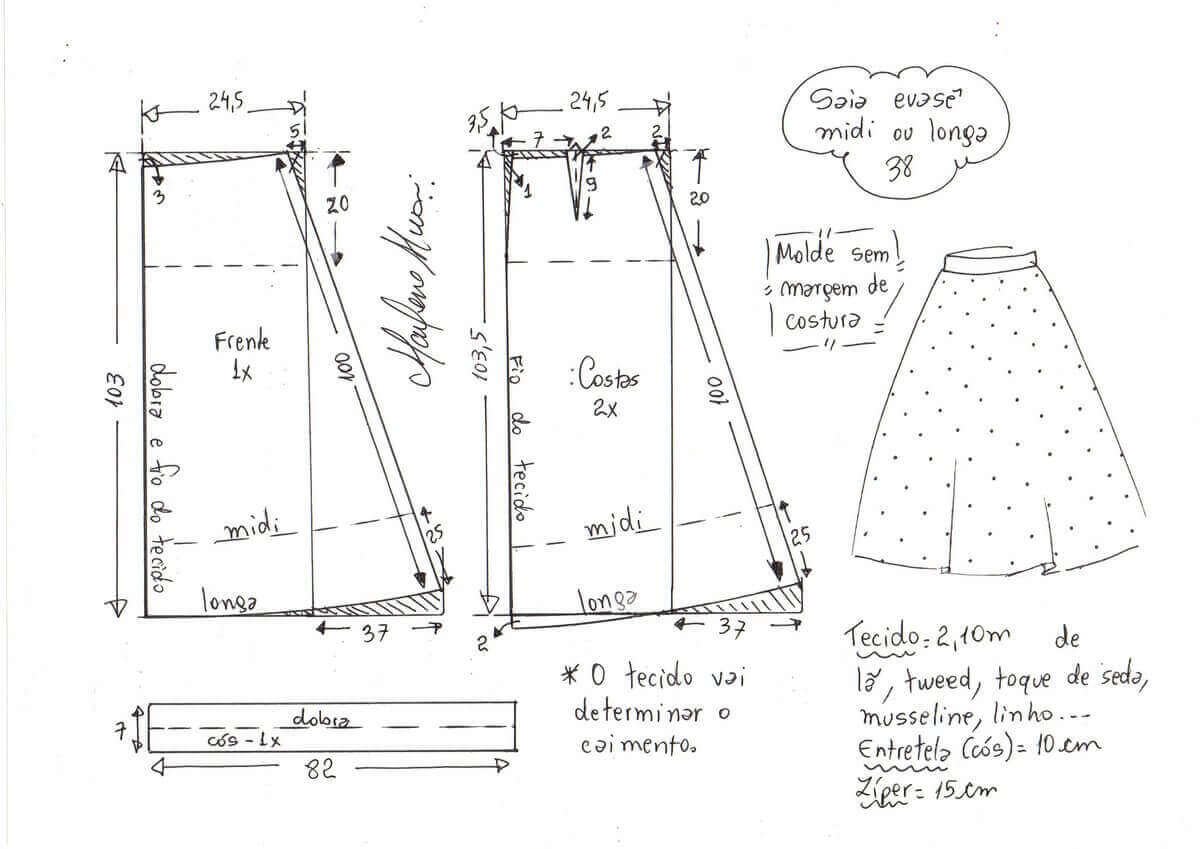 24,5
5
3
20
103
Frente
1x
100
dobra e fio do tecido
midi
25
longa
37
24,5
3,5
7
2
2
1
9
20
103,5
Fio do tecido
:Costas
2x
100
midi
25
longa
2
37
Saia evasê
midi ou longa
38
Molde sem
margem de
costura
7
dobra
cós - 1x
82
* O tecido vai
determinar o
caimento.
Tecido = 2,10m de
lã, tweed, toque de seda,
musseline, linho...
Entretela (cós) = 10 cm
Zíper = 15 cm